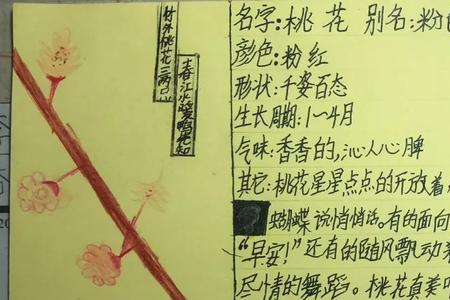 竹外桃花三两
春江水暖鸭先知
名字:桃花 别名:粉
颜色:粉红
形状:千姿百态
生长周期:1~4月
气味:香香的,沁人心脾
其它:桃花星星点点的开放着
蝴蝶说悄悄话。有的面向
“早安!”还有的随风飘动
尽情的舞蹈。桃花真美